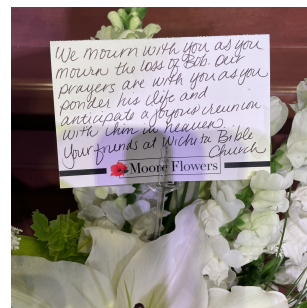 We mourn with you as you
mourn the loss of Bob. Our
prayers are with you as you
ponder his life and
anticipate a joyous reunion
with him in heaven.
Your friends at Wichita Bible
Church
Moore Flowers